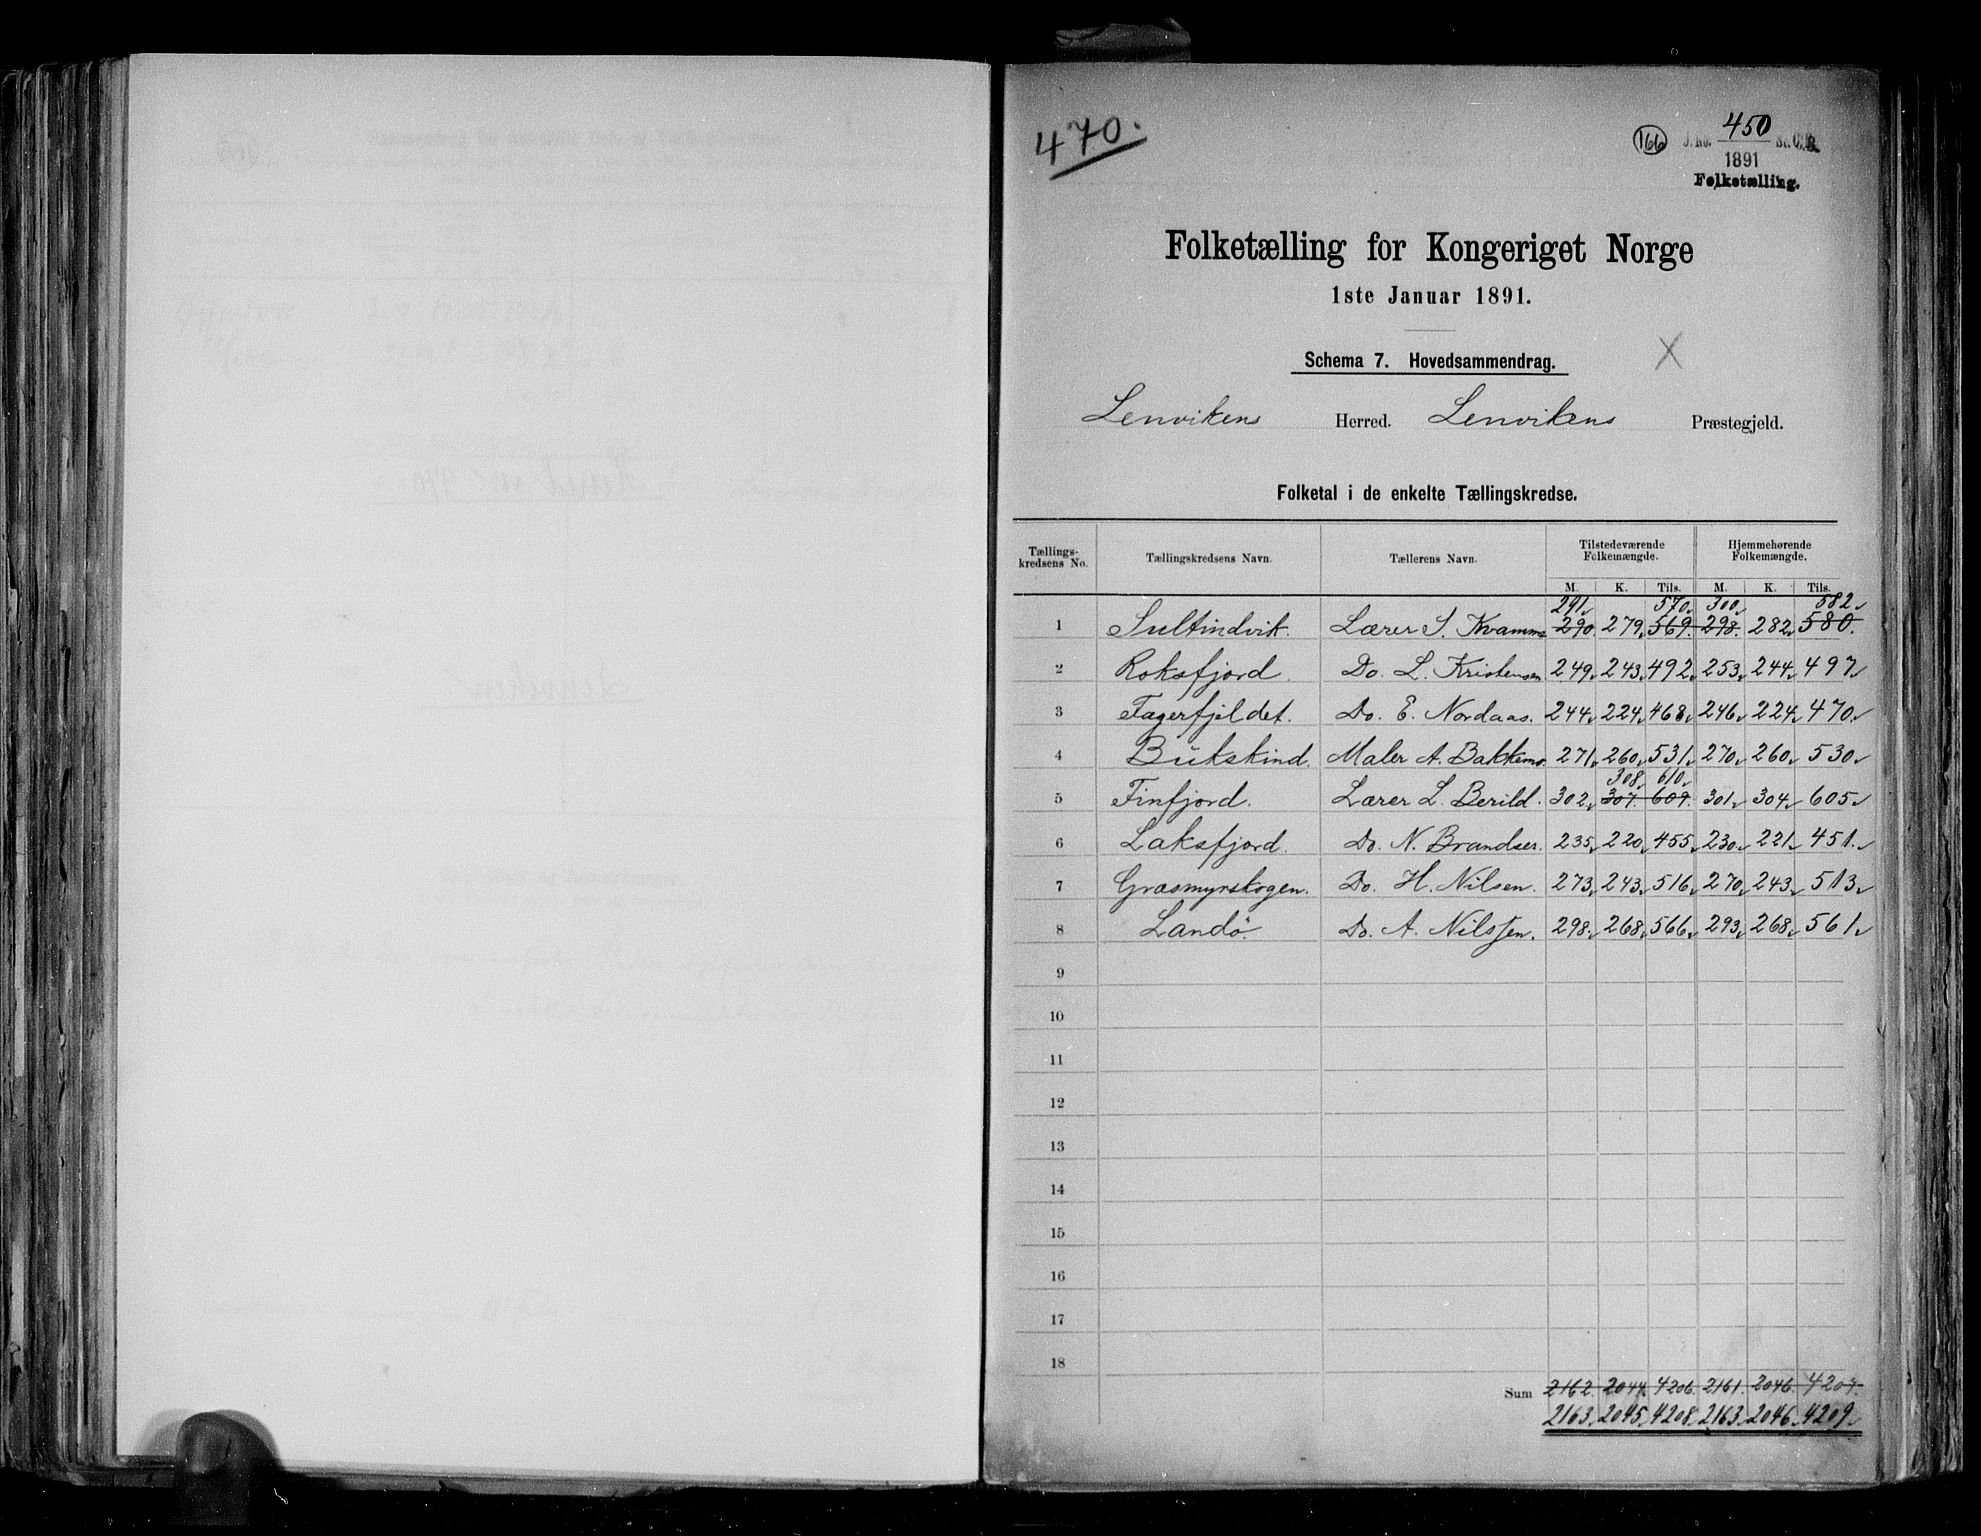 470.
166
J. No. 450 St. C. B.
1891
Folketælling.
Folketælling for Kongeriget Norge
1ste Januar 1891.
Schema 7. Hovedsammendrag.
Lenvikens Herred. Lenvikens Præstegjeld.
Folketal i de enkelte Tællingskredse.
Tællings-kredsens No. Tællingskredsens Navn. Tællerens Navn. Tilstedeværende Folkemængde. Hjemmehørende Folkemængde.
M. K. Tils. M. K. Tils.
291 570 300 582
1 Sultindvik. Lærer S. Kvamme 290 279 569 298 282 580
2 Roksfjord. Do. L. Kristensen 249 243 492 253 244 497
3 Fagerfjeldet. Do. E. Nordaas. 244 224 468 246 224 470
4 Bukskind. Maler A. Bakkemo. 271 260 531 270 260 530
308 610
5 Finfjord. Lærer L. Berild. 302 307 609 301 304 605
6 Laksfjord. Do. N. Brandser. 235 220 455 230 221 451
7 Græsmyrskogen. Do. H. Nilsen. 273 243 516 270 243 513
8 Landö. Do. A. Nilssen. 298 268 566 293 268 561
9
10
11
12
13
14
15
16
17
18
Sum 2162 2044 4206 2161 2046 4207
2163 2045 4208 2163 2046 4209